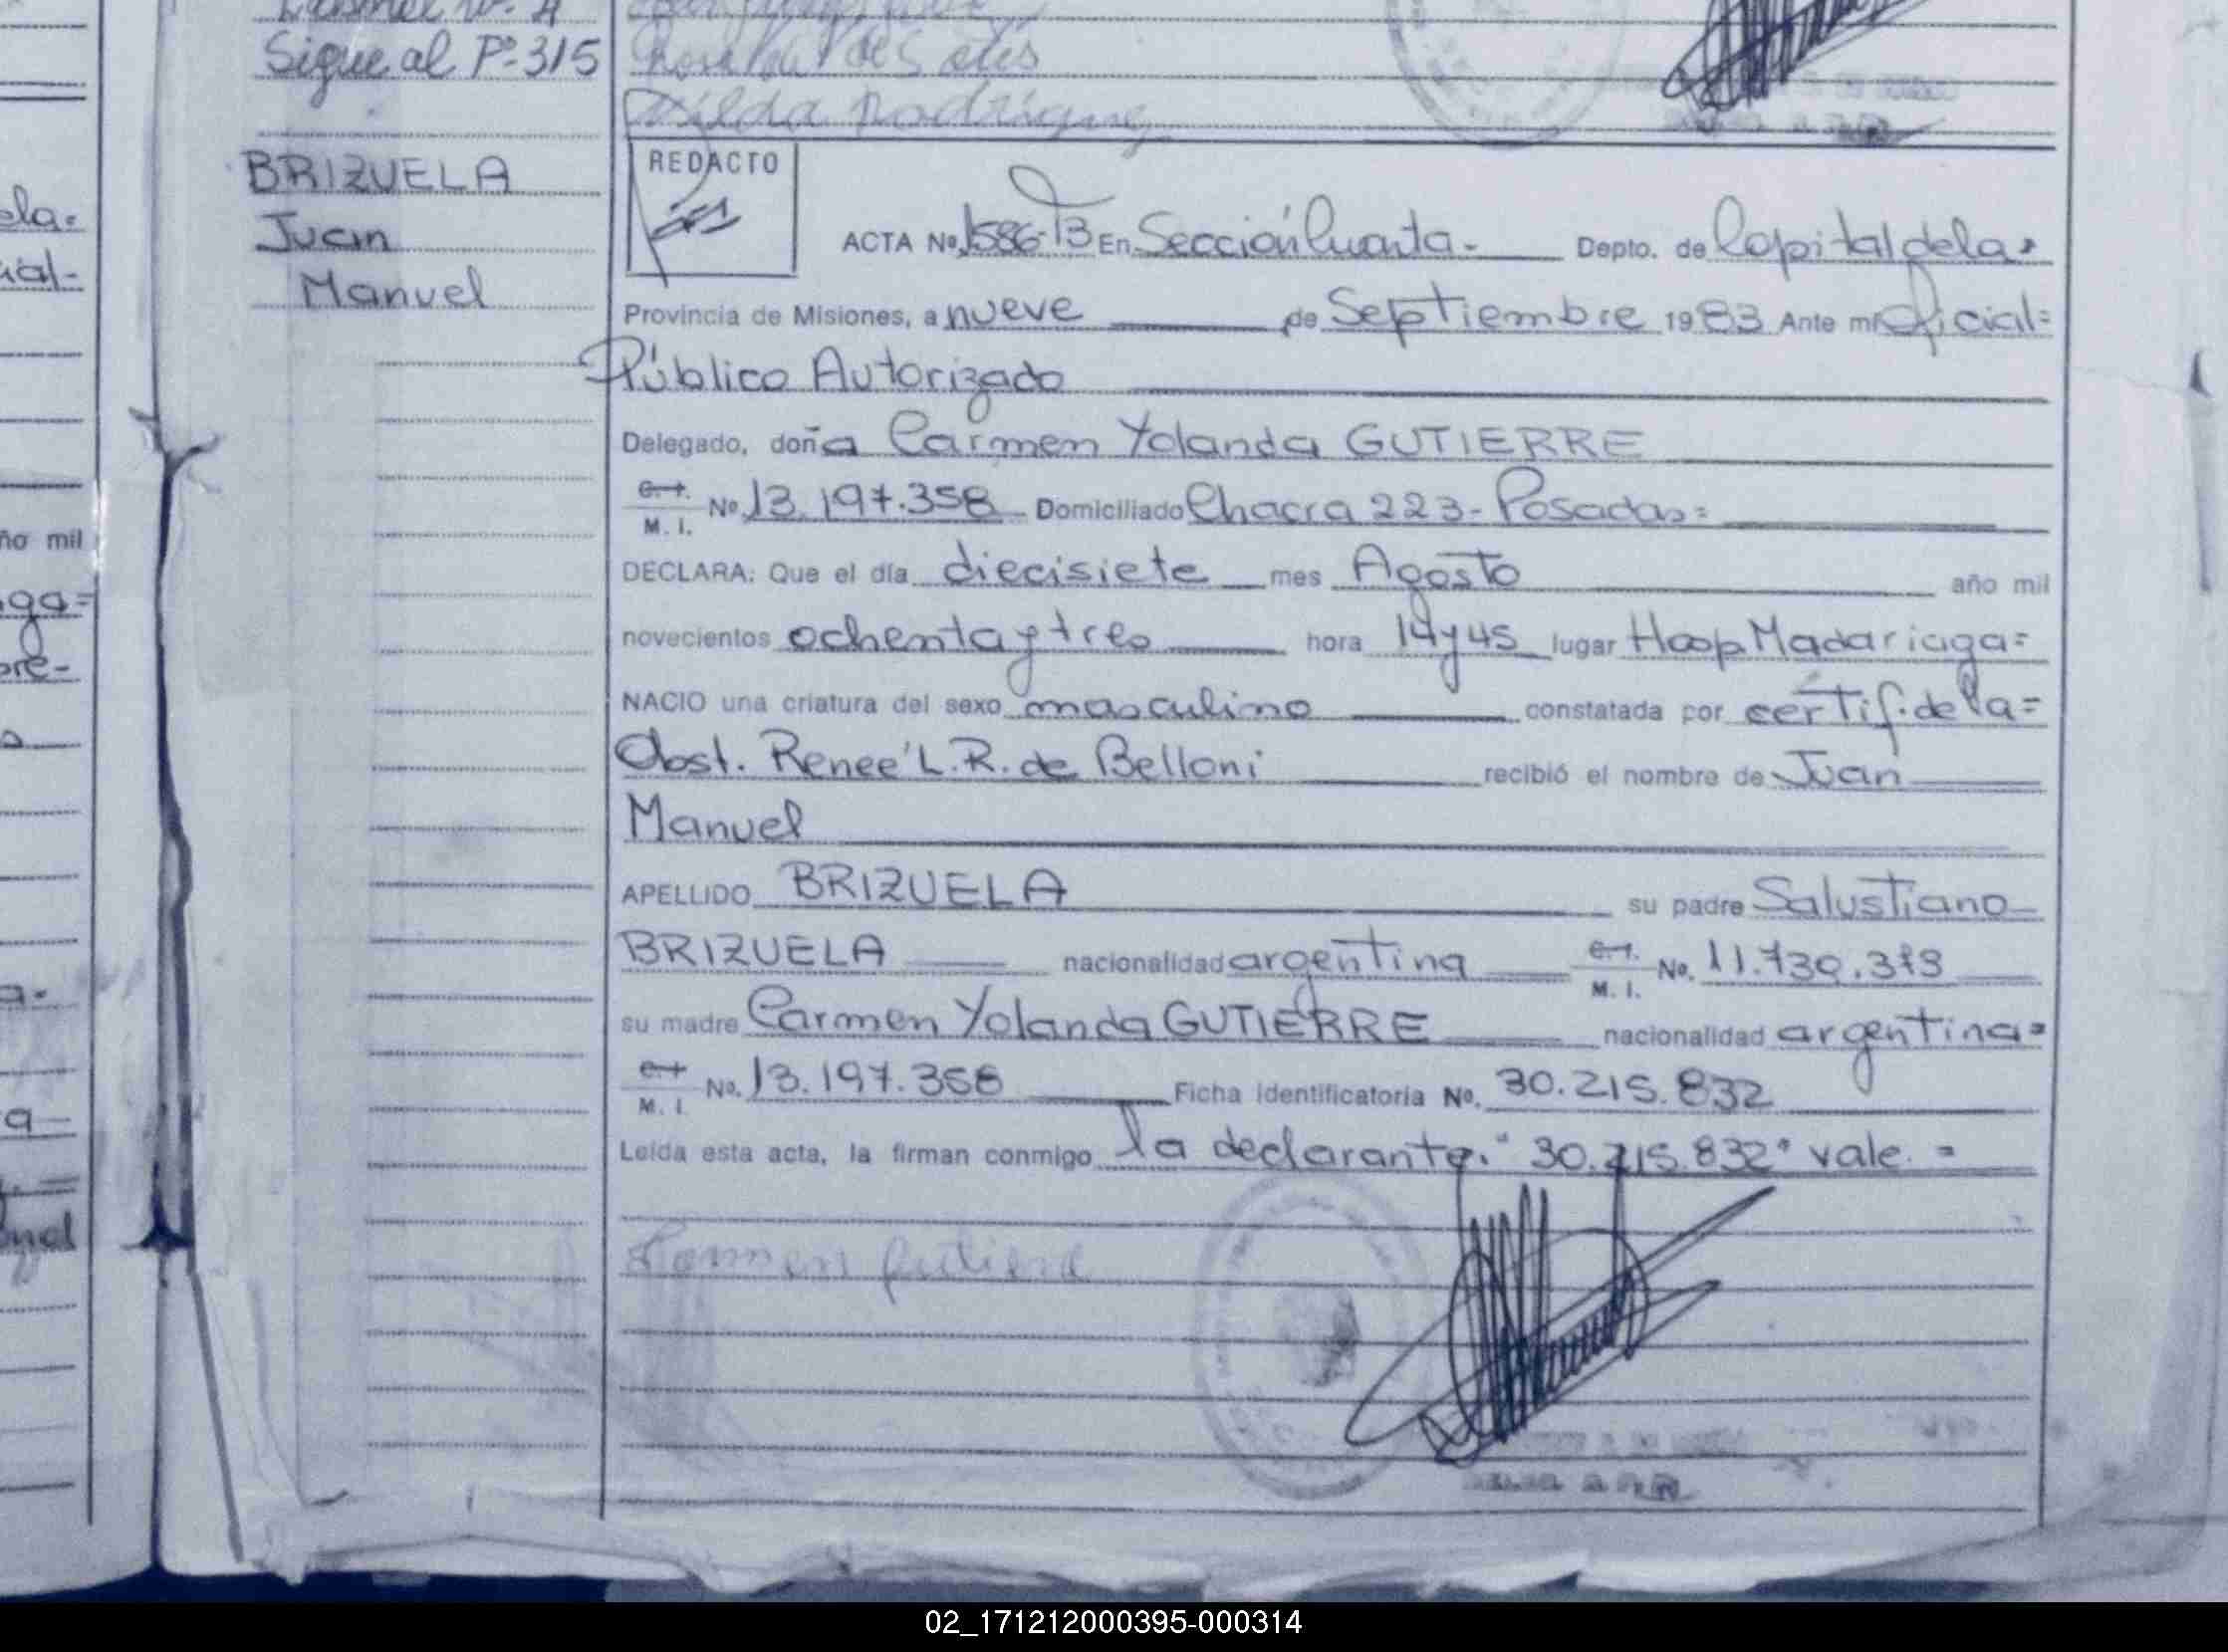 Sigue al Pº 315
BRIZUELA
Juan
Manuel
REDACTO
ACTA Nº 1586-T3 En Sección Cuarta- Depto. de Capital de la=
Provincia de Misiones, a nueve de Septiembre 1983 Ante mí Oficial=
Público Autorizado
Delegado, doña Carmen Yolanda GUTIERRE
C. I. M. I. Nº 13.197.358 Domiciliado Chacra 223- Posadas=
DECLARA: Que el día diecisiete mes Agosto año mil
novecientos ochenta y tres hora 14 y 45 lugar Hosp Madariaga=
NACIO una criatura del sexo masculino constatada por certif. de la=
Obst. Reneé L. R. de Belloni recibió el nombre de Juan
Manuel
APELLIDO BRIZUELA su padre Salustiano
BRIZUELA nacionalidad argentina C. I. M. I. No.
su madre Carmen Yolanda GUTIERRE nacionalidad argentina=
C. I. M. I. No. 13.197.358 Ficha identificatoria No. 30.215.832
Leída esta acta, la firman conmigo la declarante. "30.215.832" vale. =
Carmen Gutierre
02_171212000395-000314